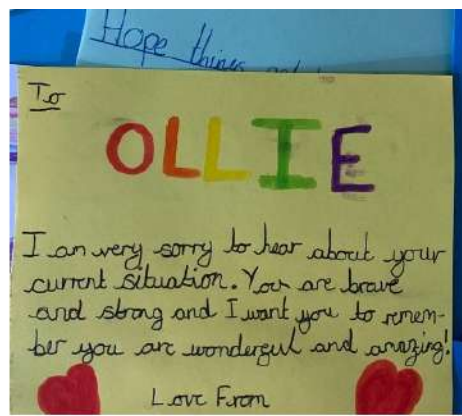 Hope things
To
OLLIE
I am very sorry to hear about your
current situation. You are brave
and strong and I want you to remem-
ber you are wonderful and amazing!
Love From